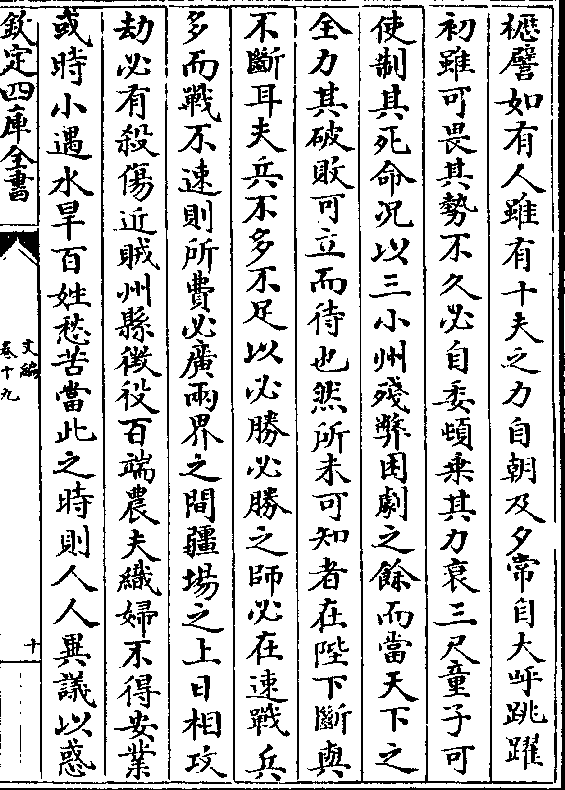 櫪譬如有人雖有十夫之力自朝及夕常自大呼跳躍
初雖可畏其勢不久必自委頓乗其力衰三尺童子可
使制其死命况以三小州殘弊困劇之餘而當天下之
全力其破敗可立而待也然所未可知者在陛下斷與
不斷耳夫兵不多不足以必勝必勝之師必在速戰兵
多而戰不速則所費必廣兩界之間疆埸之上日相攻
劫必有殺傷近賊州縣徴役百端農夫織婦不得安業
或時小遇水旱百姓愁苦當此之時則人人異議以惑
欽定四庫全書
文編
卷十九
十